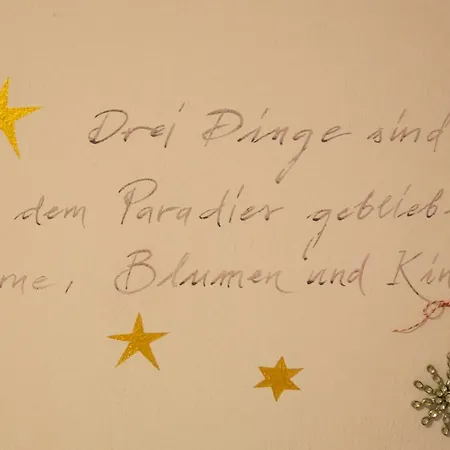 Drei Dinge sind
dem Paradies geblieb
me, Blumen und Kin